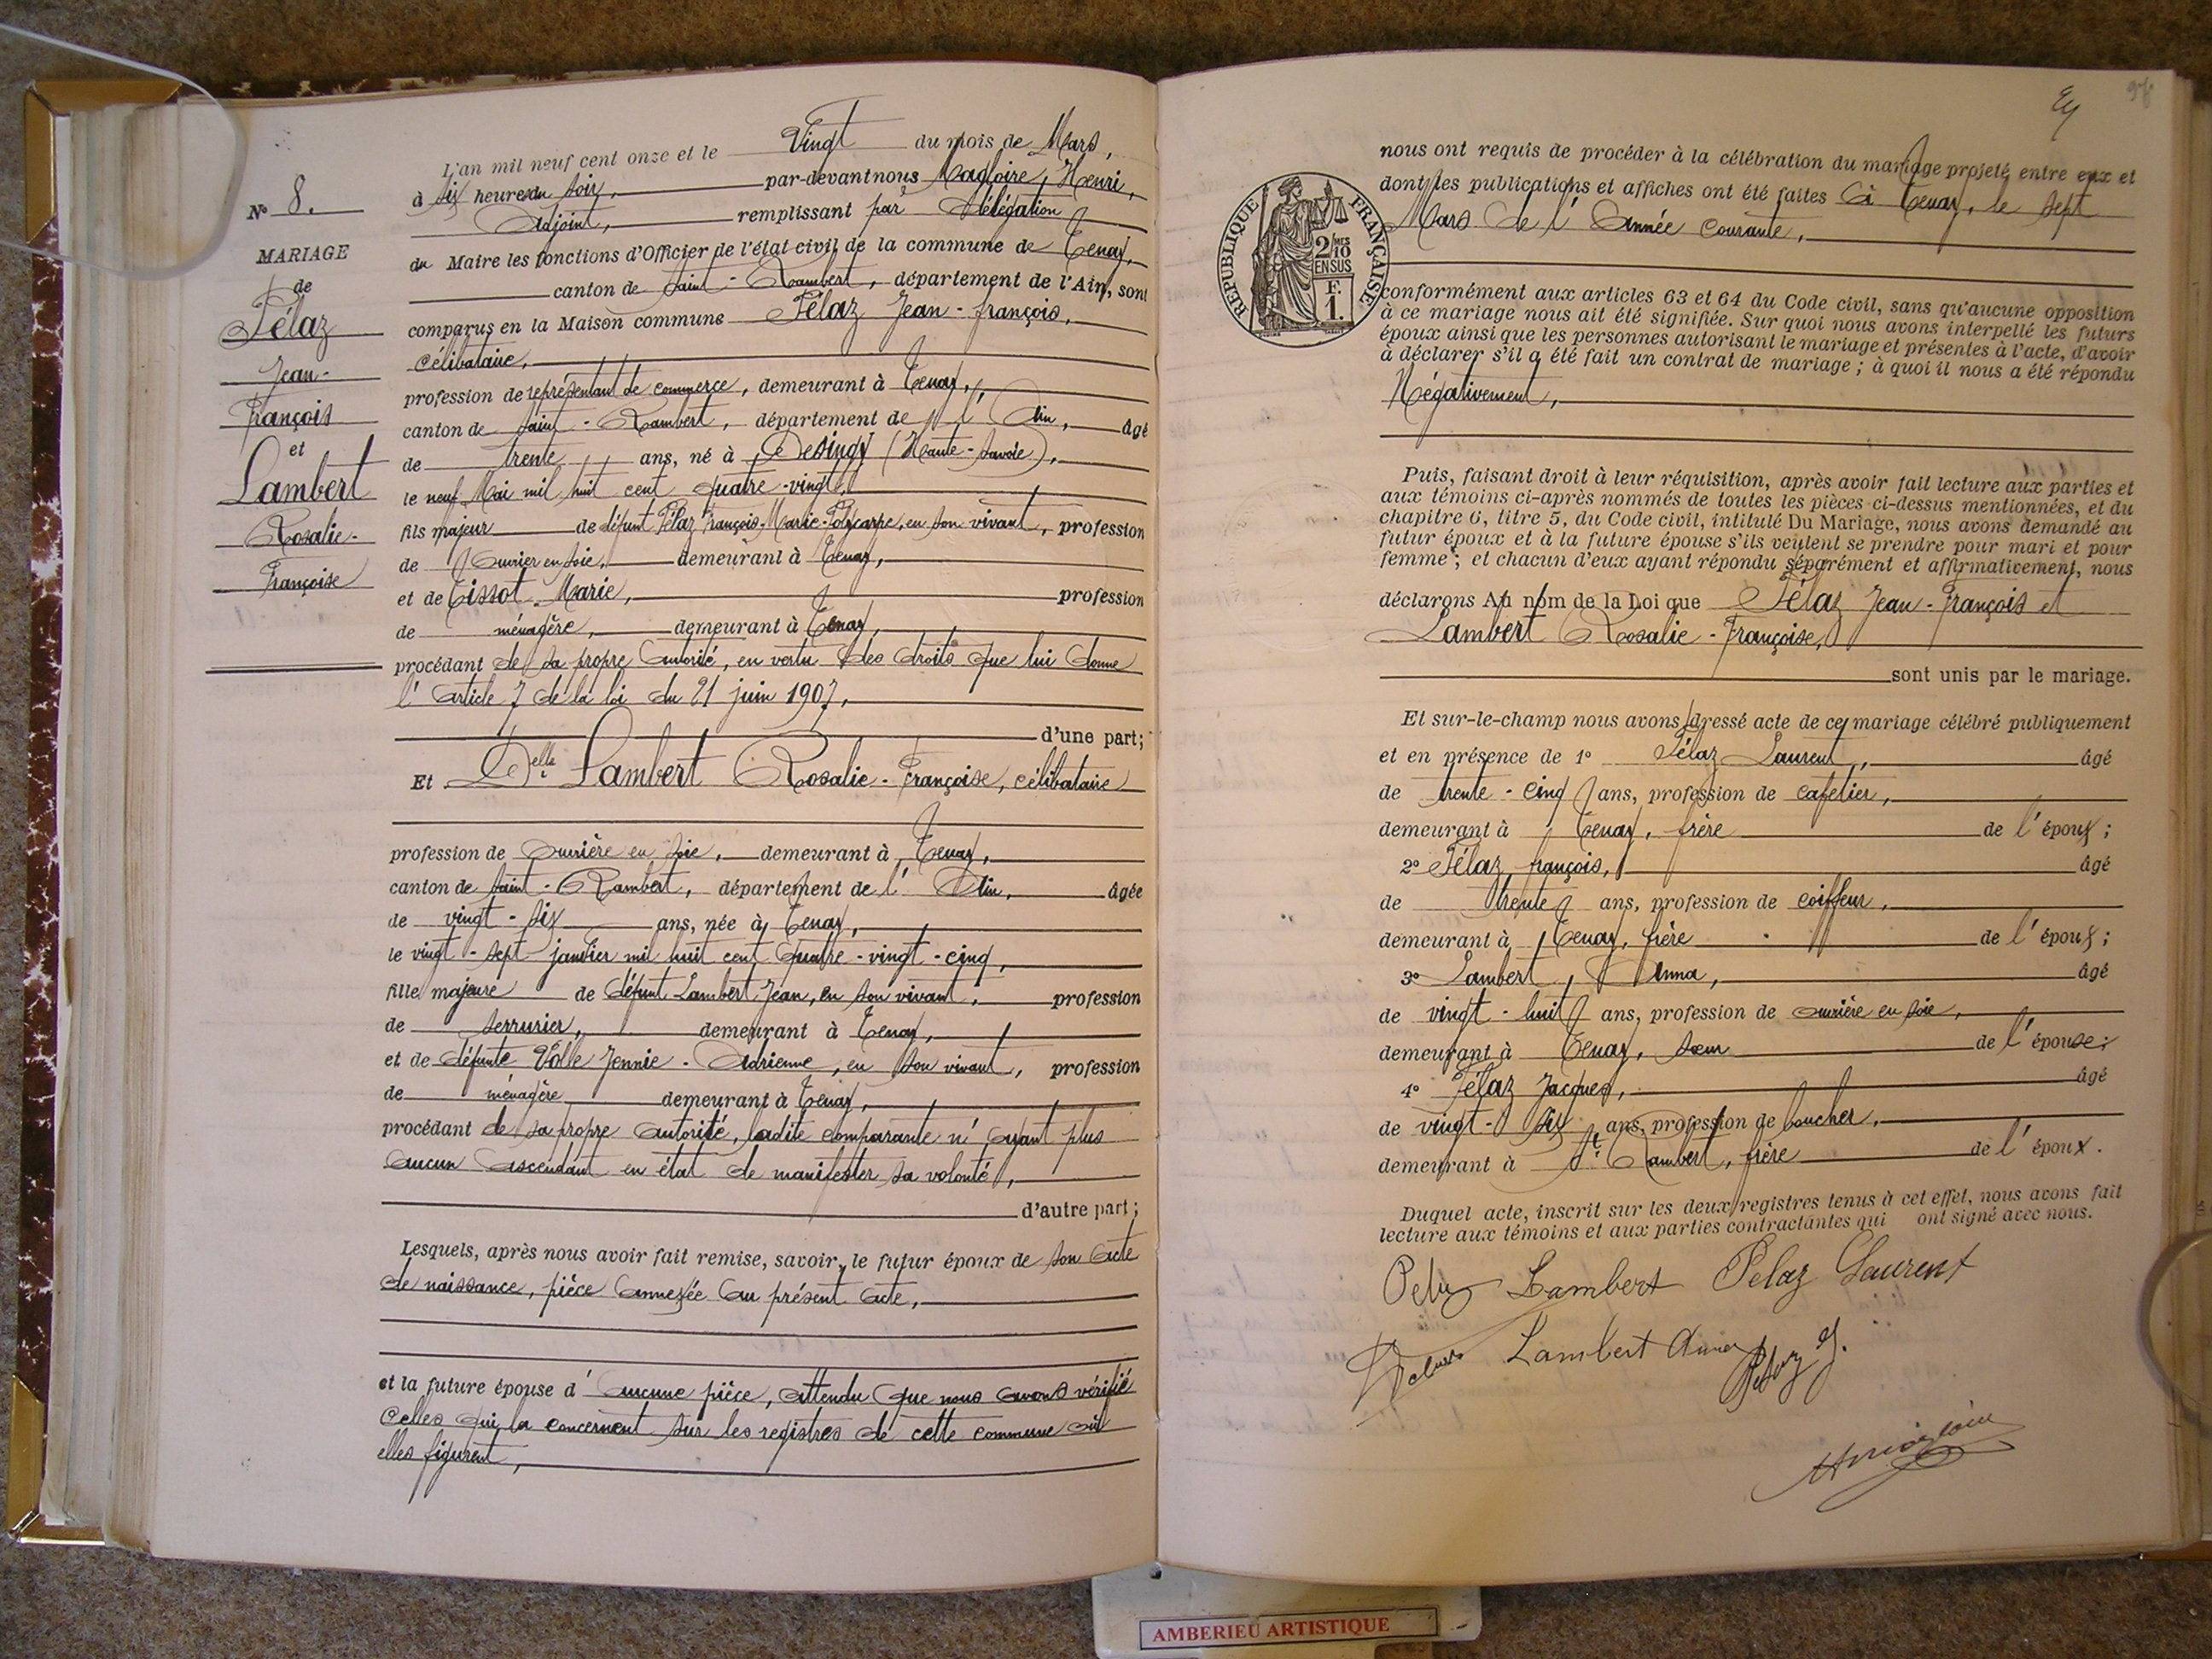 L'an mil neuf cent onze et le Vingt du mois de Mars,
à six heures du soir, par-devant nous Magloire, Henri,
Adjoint, remplissant par délégation
du Maire les fonctions d'Officier de l'état civil de la commune de Tenay,
canton de Saint-Rambert, département de l'Ain, sont
comparus en la Maison commune Pélaz Jean-François,
célibataire,
profession de représentant de commerce, demeurant à Tenay,
canton de Saint-Rambert, département de l'Ain, âgé
de trente ans, né à Desingy (Haute-Savoie),
le neuf Mai mil huit cent quatre-vingt,
fils majeur de défunt Pélaz François-Marie-Polycarpe, en son vivant, profession
de Ouvrier en soie, demeurant à Tenay,
et de Tissot Marie, profession
de ménagère, demeurant à Tenay,
procédant de sa propre autorité, en vertu des droits que lui donne
l'article 7 de la loi du 21 juin 1907,
d'une part;
Et Delle Lambert Rosalie-Françoise, célibataire
profession de Ouvrière en soie, demeurant à Tenay,
canton de Saint-Rambert, département de l'Ain, âgée
de vingt-six ans, née à Tenay,
le vingt-sept janvier mil huit cent quatre-vingt-cinq,
fille majeure de défunt Lambert Jean, en son vivant, profession
de serrurier, demeurant à Tenay,
et de défunte Volle Jennie-Adrienne, en son vivant, profession
de ménagère demeurant à Tenay,
procédant de sa propre autorité, ladite comparante n'ayant plus
aucun ascendant en état de manifester sa volonté,
d'autre part;
Lesquels, après nous avoir fait remise, savoir, le futur époux de son acte
de naissance, pièce annexée au présent acte,
et la future épouse d'aucune pièce, attendu que nous avons vérifié
celles qui la concernent sur les registres de cette commune où
elles figurent,
N° 8.
MARIAGE
de
Pélaz
Jean-
François
et
Lambert
Rosalie-
Françoise
RÉPUBLIQUE FRANÇAISE
2/10MES
EN SUS
F.
1.
nous ont requis de procéder à la célébration du mariage projeté entre eux et
dont les publications et affiches ont été faites à Tenay, le sept
Mars de l'Année courante,
conformément aux articles 63 et 64 du Code civil, sans qu'aucune opposition
à ce mariage nous ait été signifiée. Sur quoi nous avons interpellé les futurs
époux ainsi que les personnes autorisant le mariage et présentes à l'acte, d'avoir
à déclarer s'il a été fait un contrat de mariage; à quoi il nous a été répondu
Négativement,
Puis, faisant droit à leur réquisition, après avoir fait lecture aux parties et
aux témoins ci-après nommés de toutes les pièces ci-dessus mentionnées, et du
chapitre 6, titre 5, du Code civil, intitulé Du Mariage, nous avons demandé au
futur époux et à la future épouse s'ils veulent se prendre pour mari et pour
femme; et chacun d'eux ayant répondu séparément et affirmativement, nous
déclarons Au nom de la Loi que Pélaz Jean-François et
Lambert Rosalie-Françoise,
sont unis par le mariage.
Et sur-le-champ nous avons dressé acte de ce mariage célébré publiquement
et en présence de 1° Pélaz Laurent, âgé
de trente-cinq ans, profession de cafetier,
demeurant à Tenay, frère de l'époux;
2° Pélaz François, âgé
de trente ans, profession de coiffeur,
demeurant à Tenay, frère de l'époux;
3° Lambert Anna, âgé
de vingt-huit ans, profession de ouvrière en soie,
demeurant à Tenay, sœur de l'épouse;
4° Pélaz Jacques, âgé
de vingt-six ans, profession de boucher,
demeurant à St Rambert, frère de l'époux.
Duquel acte, inscrit sur les deux registres tenus à cet effet, nous avons fait
lecture aux témoins et aux parties contractantes qui ont signé avec nous.
Lambert Pelaz Laurent
Lambert
AMBERIEU ARTISTIQUE